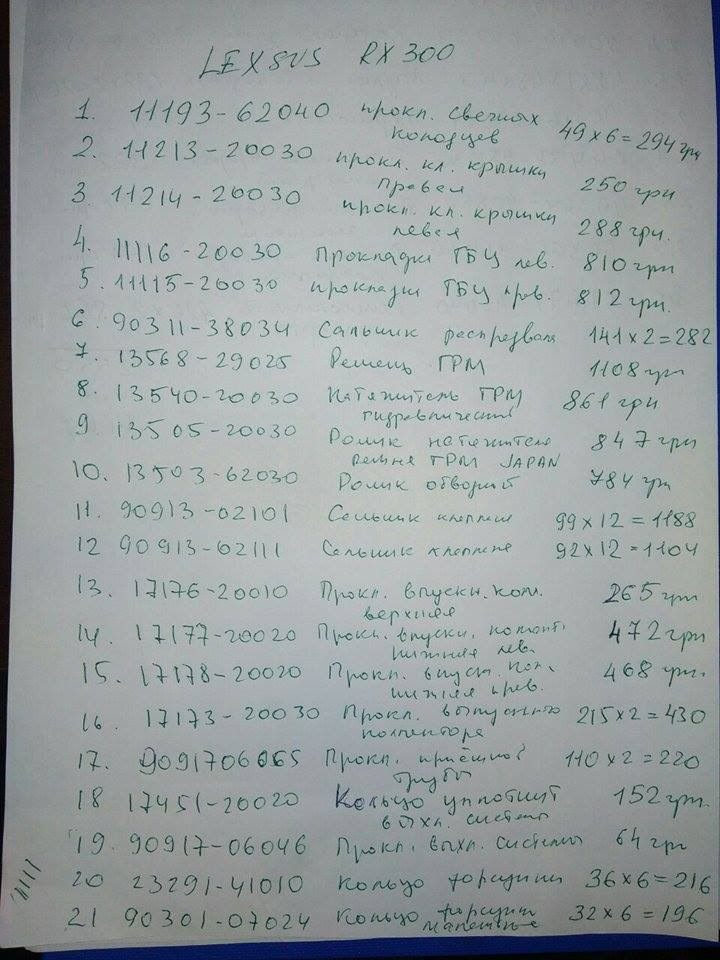 LEXSUS RX 300
1. 11193-62040 прокл. свечных колодцев 49 x 6 = 294 грн
2. 11213-20030 прокл. кл. крышки правая 250 грн
3. 11214-20030 прокл. кл. крышки левая 288 грн.
4. 11116-20030 Прокладка ГБЦ лев. 810 грн
5. 11115-20030 прокладка ГБЦ прав. 812 грн.
6. 90311-38034 Сальник распредвала 141 x 2 = 282
7. 13568-29025 Ремень ГРМ 1108 грн
8. 13540-20030 Натяжитель ГРМ гидравлический 861 грн
9. 13505-20030 Ролик натяжителя ремня ГРМ JAPAN 847 грн
10. 13503-62030 Ролик обводной 784 грн
11. 90913-02101 Сальник клапана 99 x 12 = 1188
12 90913-02111 Сальник клапана 92 x 12 = 1104
13. 17176-20010 Прокл. впускн. кол. верхняя 265 грн
14. 17177-20020 Прокл. впускн. коллект. нижняя лев. 472 грн
15. 17178-20020 Прокл. впуск. кол. нижняя прав. 468 грн.
16. 17173-20030 Прокл. выпускного коллектора 215 x 2 = 430
17. 9091706065 Прокл. приёмной трубы 110 x 2 = 220
18 17451-20020 Кольцо уплотнит выхл. системы 152 грн.
19. 90917-06046 Прокл. выхл. системы 64 грн
20 23291-41010 Кольцо форсунки 36 x 6 = 216
21 90301-07024 Кольцо форсунки маленькое 32 x 6 = 196